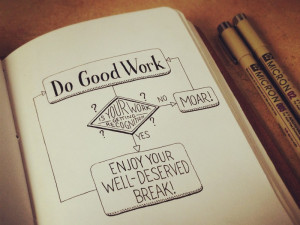 Do Good Work
?
?
IS YOUR WORK
GETTING
RECOGNITION
?
?
NO
MOAR!
YES
ENJOY YOUR
WELL-DESERVED
BREAK!
MICRON
MICRON